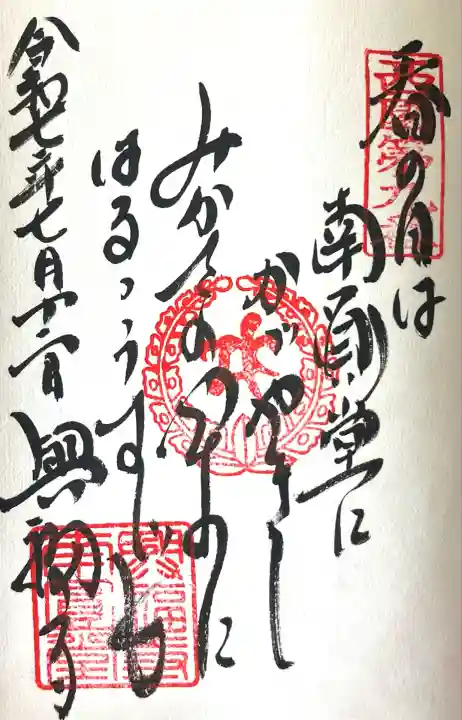 西国第九番
春の日は
南圓堂に
かゞやきて
みかさの山に
はるゝうす
令和七年七月
興福寺